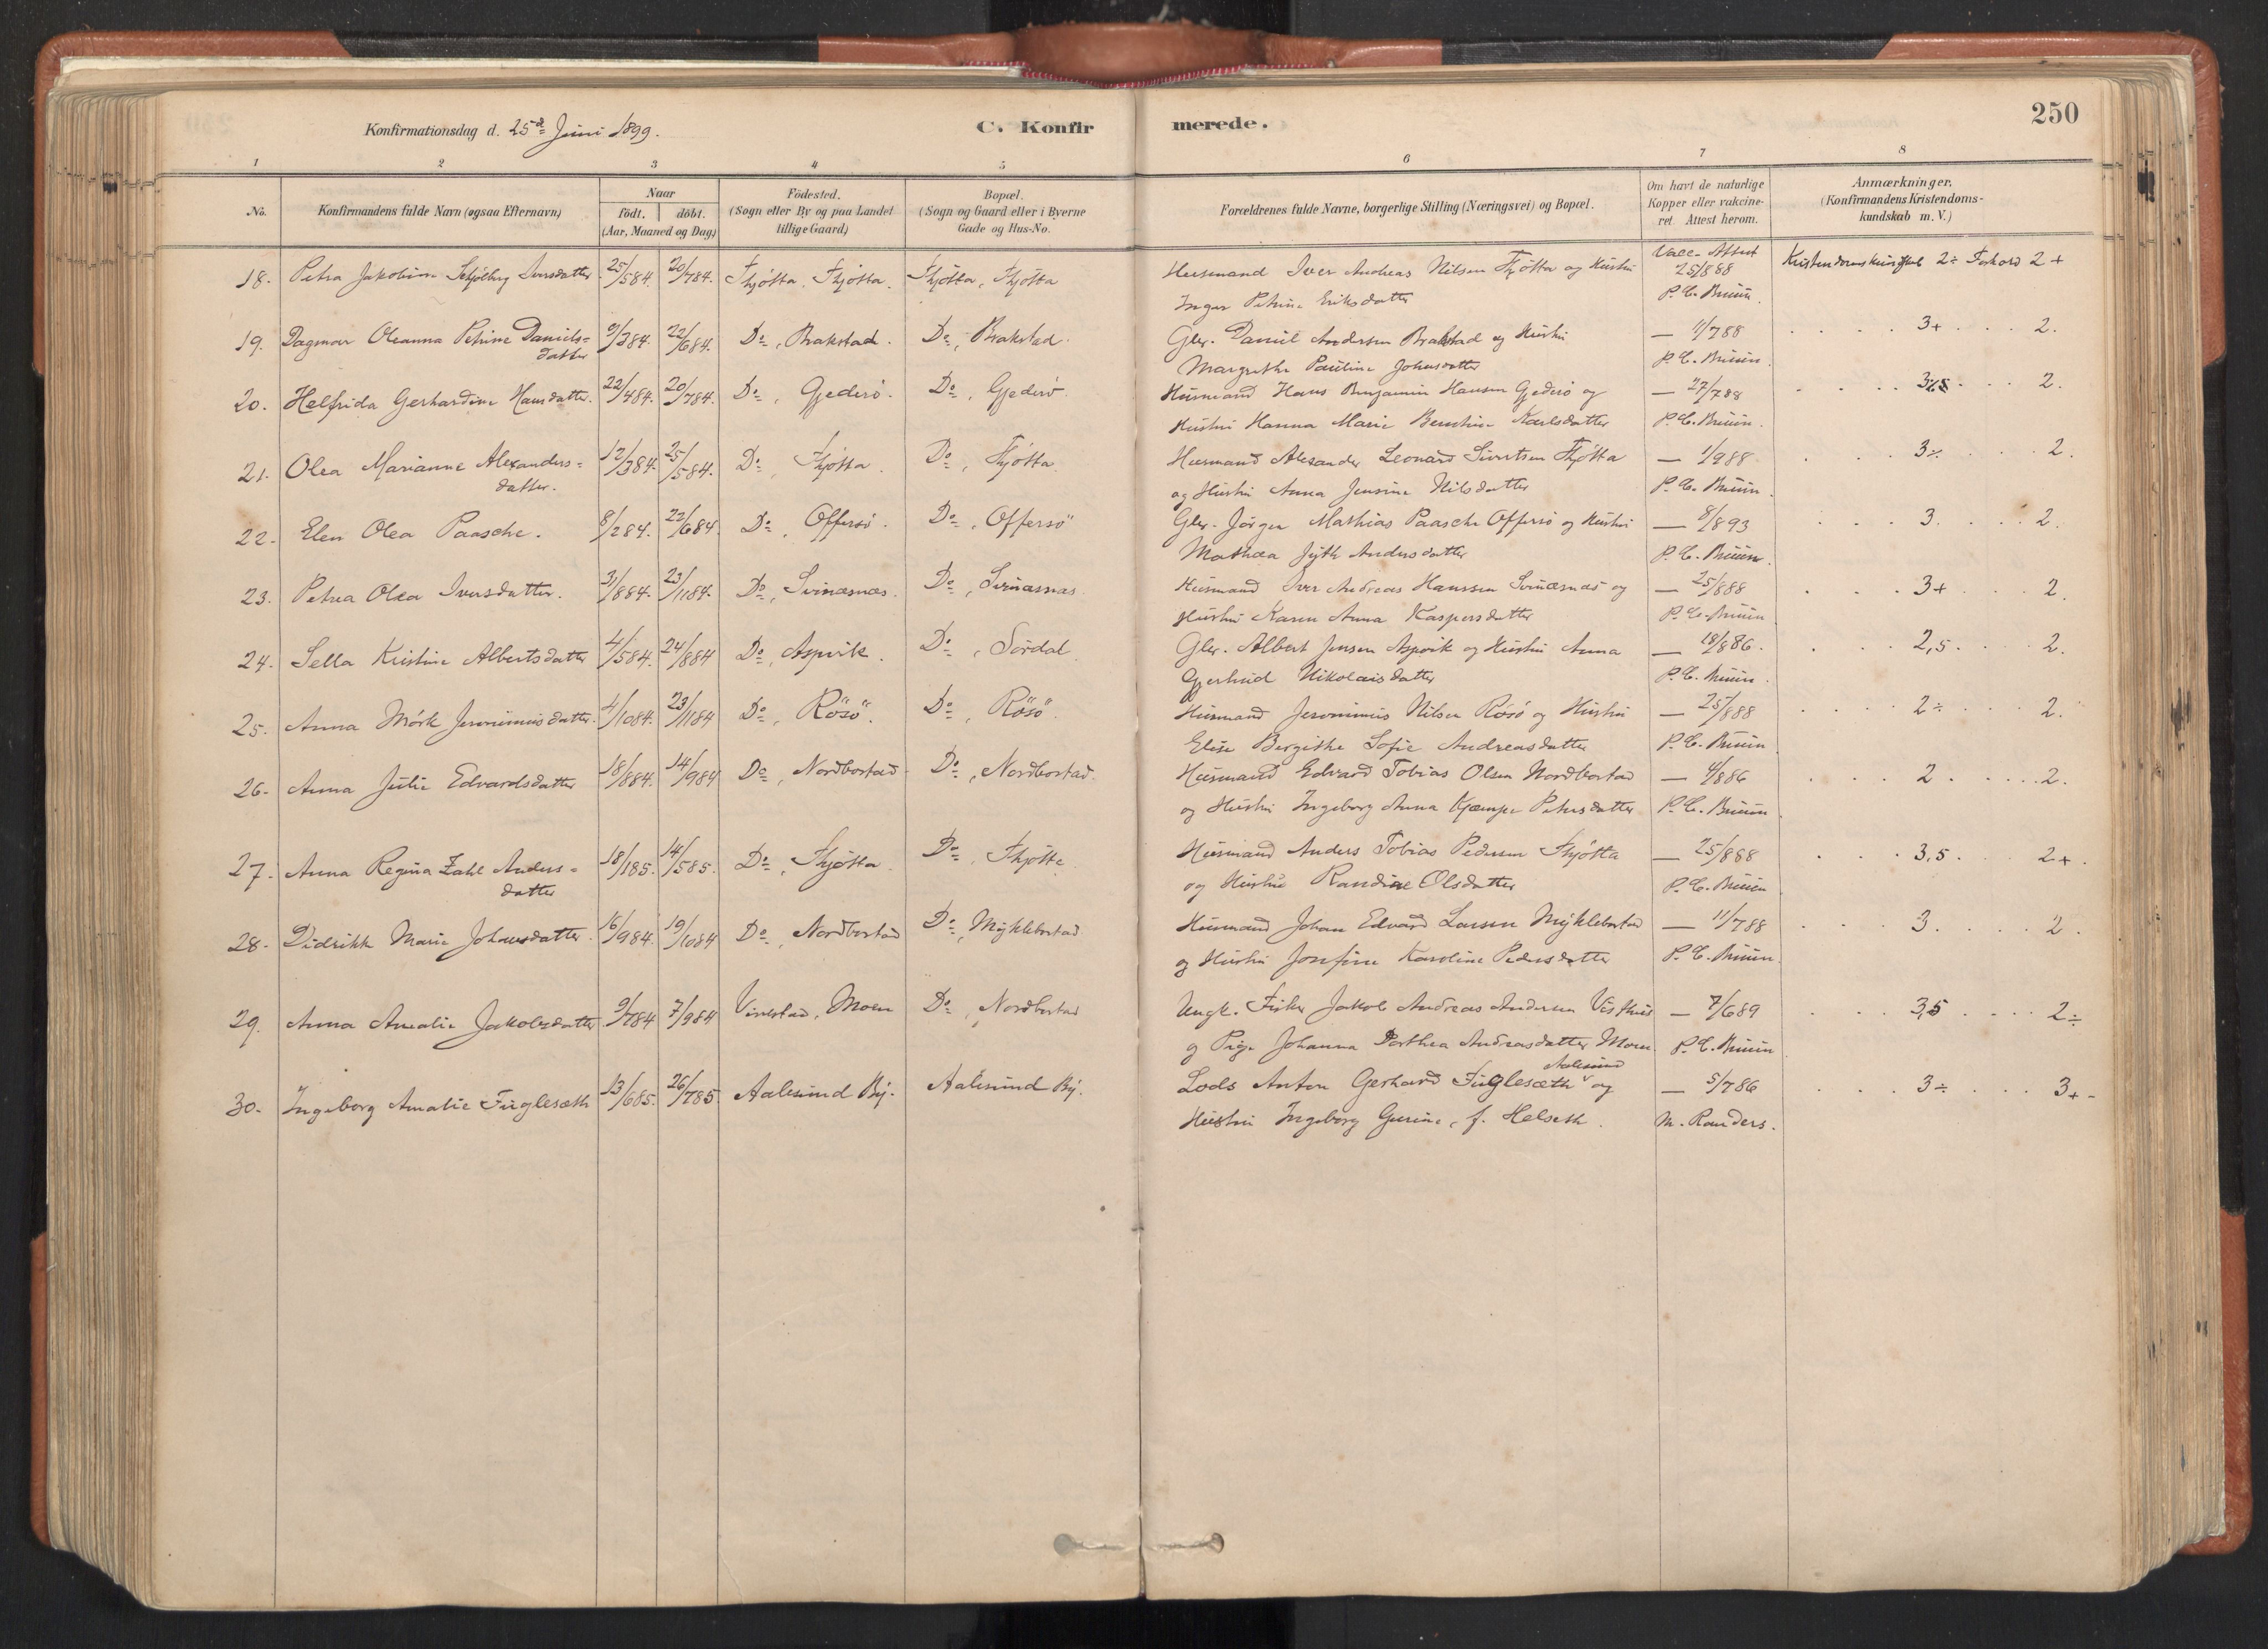 Konfirmationsdag d. 25d Juni 1899.
C. Konfirmerede.
250
1 2 3 4 5 6 7 8
No.
Konfirmandens fulde Navn (ogsaa Efternavn)
Naar
födt. döbt.
(Aar, Maaned og Dag)
Födested.
(Sogn eller By og paa Landet
tillige Gaard)
Bopæl.
(Sogn og Gaard eller i Byerne
Gade og Hus-No.
Forældrenes fulde Navne, borgerlige Stilling (Næringsvei) og Bopæl.
Om havt de naturlige
Kopper eller vakcine-
ret. Attest herom.
Anmærkninger.
(Konfirmandens Kristendoms-
kundskab m. V.)
18. Petra Jakobine Iversdatter 25/584. 20/784. Thjötta, Thjötta. Thjötta, Thjötta Husmand Iver Andreas Nilsen Thjötta og Hustru Vacc. Attest 25/888 Kristendomskundskab 2÷ Forhold 2+
Inger Petrine Eriksdatter P. C. Bruun.
19. Dagmar Oleanna Petrine Daniels= 9/384. 22/684. Do, Brakstad. Do, Brakstad. Glbr. Daniel Andersen Brakstad og Hustru — 11/788 . . . . 3+ . . . 2.
datter Margrethe Pauline Johnsdatter P. C. Bruun.
20. Helfrida Gerhardine Hansdatter. 22/484. 20/784. Do, Gjederö. Do, Gjederö. Husmand Hans Benjamin Hansen Gjederö og — 27/788 . . . . . . . 2.
Hustru Hanna Marie Karlsdatter P. C. Bruun.
21. Olea Marianne Alexanders= 12/384. 25/584. Do, Thjötta. Do, Thjötta. Husmand Alexander Leonard Sivertsen Thjötta — 1/988 . . . . 3÷ . . 2.
datter. og Hustru Anna Jensine Nilsdatter P. C. Bruun.
22. Elen Olea Paasche. 8/284. 22/684. Do, Offersö. Do, Offersö Glbr. Jörgen Mathias Paasche Offersö og Hustru — 8/893 . . . 3. . . . 2.
Mathea Andersdatter P. C. Bruun.
23. Petra Olea Iversdatter. 31/884. 23/1184. Do, Svinæsnæs. Do, Svinæsnæs Husmand Iver Andreas Hanssen Svinæsnæs og — 25/888 . . . 3+ . . . 2.
Hustru Karen Anna Kaspersdatter P. C. Bruun
24. Sella Kristine Albertsdatter 4/584. 24/884 Do, Aspvik. Do, Sördal Glbr. Albert Jensen Aspvik og Hustru Anna — 18/886. . . . 2,5 . . . 2.
Gjertrud Nikolaisdatter P. C. Bruun.
25. Anna Mörk Jeronimusdatter. 4/1084. 23/1184 Do, Rösö. Do, Rösö. Husmand Jeronimus Nilsen Rösö og Hustru — 25/888 . . . . 2÷ . . . 2.
Elise Bergithe Sofie Andreasdatter P. C. Bruun
26. Anna Julie Edvardsdatter 18/884. 14/984 Do, Nordbostad Do, Nordbostad. Husmand Edvard Tobias Olsen Nordbostad — 4/886 . . . 2 . . . . 2.
og Hustru Ingeborg Anna Kjæmpe Petersdatter P. C. Bruun
27. Anna Regina Zahl Anders= 18/185. 14/585. Do, Thjötta Do, Thjötta Husmand Anders Tobias Pedersen Thjötta — 25/888 . . . 3,5 . . . 2+.
datter og Hustru Randine Olsdatter P. C. Bruun
28. Didrikke Marie Johansdatter. 16/984. 19/1084 Do, Nordbostad Do, Myklebostad Husmand Johan Edvard Larsen Myklebostad — 11/788 . . . . 3. . . . . 2.
og Hustru Josefine Karoline Pedersdatter P. C. Bruun.
29. Anna Amalie Jakobsdatter 9/784 7/984 Vivelstad, Moen Do, Nordbostad Ungk. Fisker Jakob Andreas Andersen Visthus — 7/689 . . . 3,5 . . . . 2÷
og Pige Johanna Dorthea Andreasdatter Moen P. C. Bruun
Aalesund
30. Ingeborg Amalie Fuglesæth 13/685. 26/785. Aalesund By. Aalesund By. Lods Anton Gerhard Fuglesæth og — 5/786 . . . 3÷ . . . 3+-
Hustru Ingeborg Gurine, f. Helseth. M. Randers.